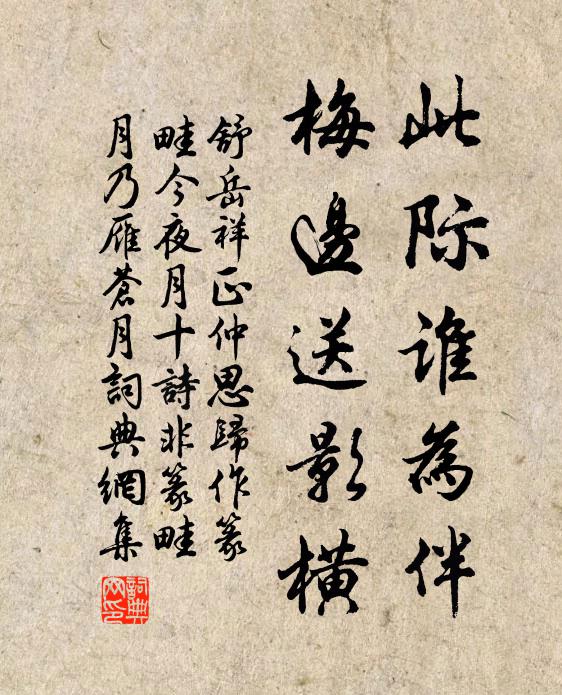 此际誰為伴
梅邊送影橫
舒岳祥正仲思歸作篆
畦今夜月十詩非篆畦
月乃雁蒼月詞典網集
詞典
网印